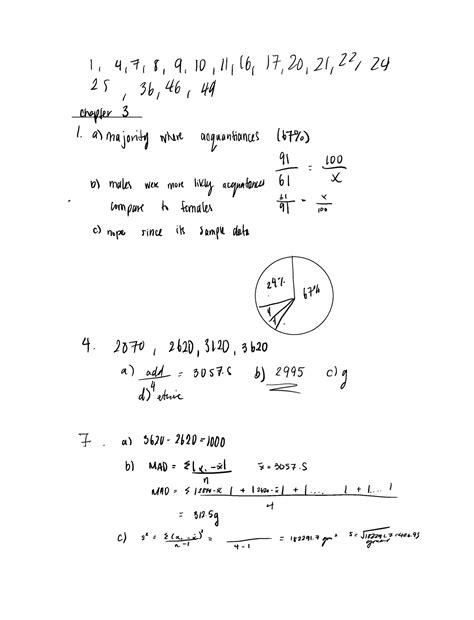 1, 4, 7, 8, 9, 10, 11, 16, 17, 20, 21, 22, 24
25, 36, 46, 49
chapter 3
1. a) majority where acquantiances (67%)
91/61 = 100/x
b) males were more likly acquatences
compare to females
61/91 = x/100
c) nope since its sample data
29%
67%
4. 2070, 2620, 3120, 3620
a) add/4 = 3057.5 b) 2995 c) g
d) ethic
7. a) 3620 - 2620 = 1000
b) MAD = Σ|xi - x̄|/n x̄ = 3057.5
MAD = Σ |2870-x̄| + |2620-x̄| + |.... | + |....|
4
= 312.5g
c) s² = Σ(xi - x̄)²/n-1 = /4-1 = 182291.7 gm²